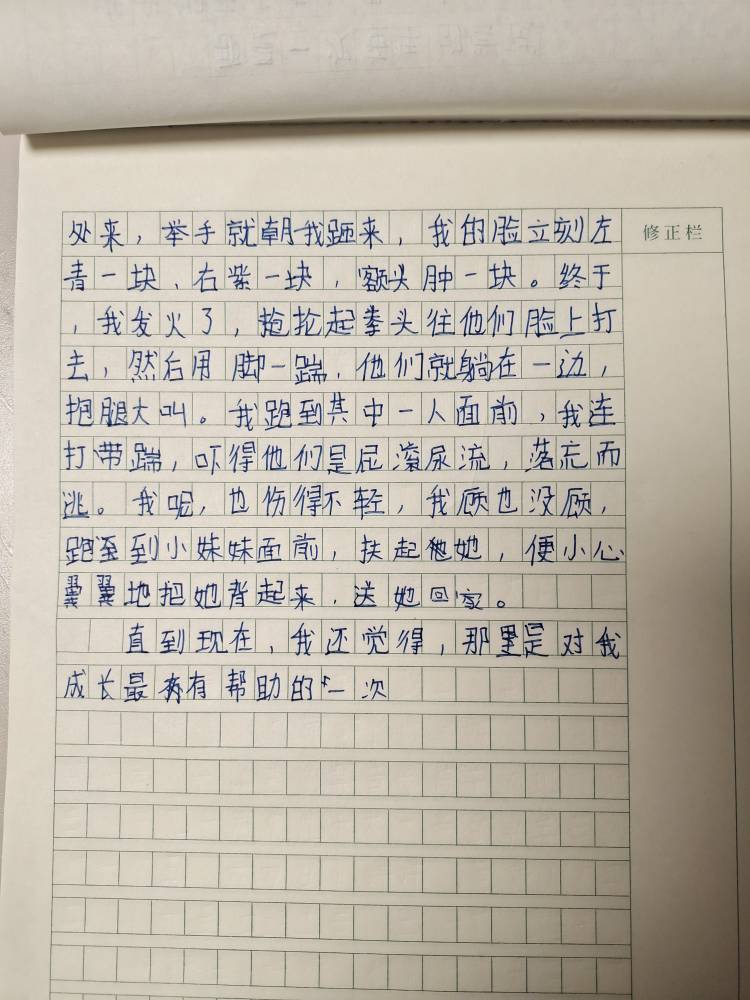 修正栏
处来，举手就朝我砸来，我的脸立刻左
青一块、右紫一块，额头肿一块。终于
，我发火了，抡起拳头往他们脸上打
去，然后用脚一踹，他们就躺在一边，
抱腿大叫。我跑到其中一人面前，我连
打带踹，吓得他们是屁滚尿流，落荒而
逃。我呢，也伤得不轻，我顾也没顾，
跑到小妹妹面前，扶起她，便小心
翼翼地把她背起来，送她回家。
直到现在，我还觉得，那是对我
成长最有帮助的一次